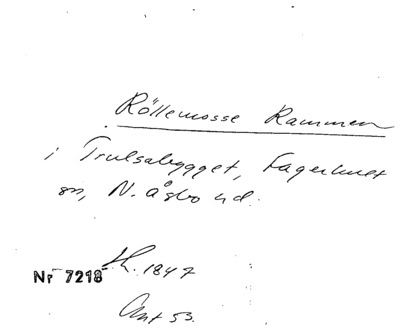 Röllemosse Rammen
i Trulsabygget, Fagerhult
sn, N. Åsbo hd.
Nr 7218 H. 1847
Ant 53.